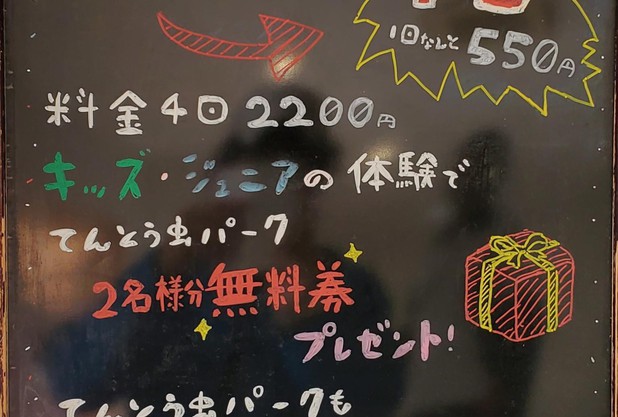 1回なんと550円
料金4回2200円
キッズ・ジュニアの体験で
てんとう虫パーク
2名様分無料券
プレゼント!
てんとう虫パークも